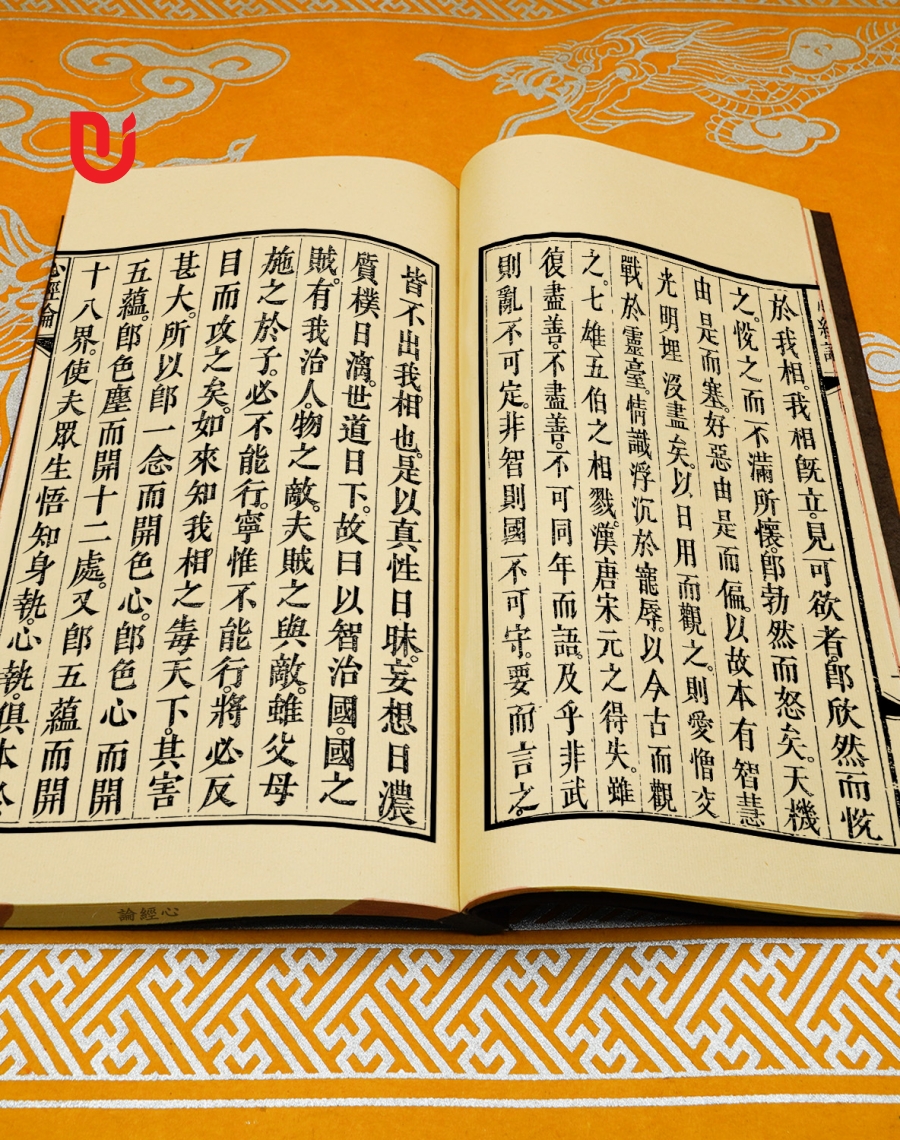 於我相。我相旣立。見可欲者。卽欣然而悅
之。悅之而不滿所懷。卽勃然而怒矣。天機
由是而塞。好惡由是而偏。以故本有智慧
光明埋沒盡矣。以日用而觀之。則愛憎交
戰於靈臺。情識浮沉於寵辱。以今古而觀
之。七雄五伯之相戮。漢唐宋元之得失。雖
復盡善。不盡善。不可同年而語。及乎非武
則亂不可定。非智則國不可守。要而言之。
皆不出我相也。是以真性日昧。妄想日濃
質樸日漓。世道日下。故曰以智治國。國之
賊。有我治人。物之敵。夫賊之與敵。雖父母
施之於子。必不能行。寧惟不能行。將必反
目而攻之矣。如來知我相之毒天下。其害
甚大。所以卽一念而開色心。卽色心而開
五蘊。卽色塵而開十二處。又卽五蘊而開
十八界。使夫眾生悟知身執。心執。俱本
心經論
心經論